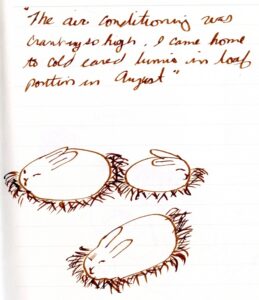 "The air conditioning was
cranking so high, I came home
to cold eared bunnis in loaf
position in August"